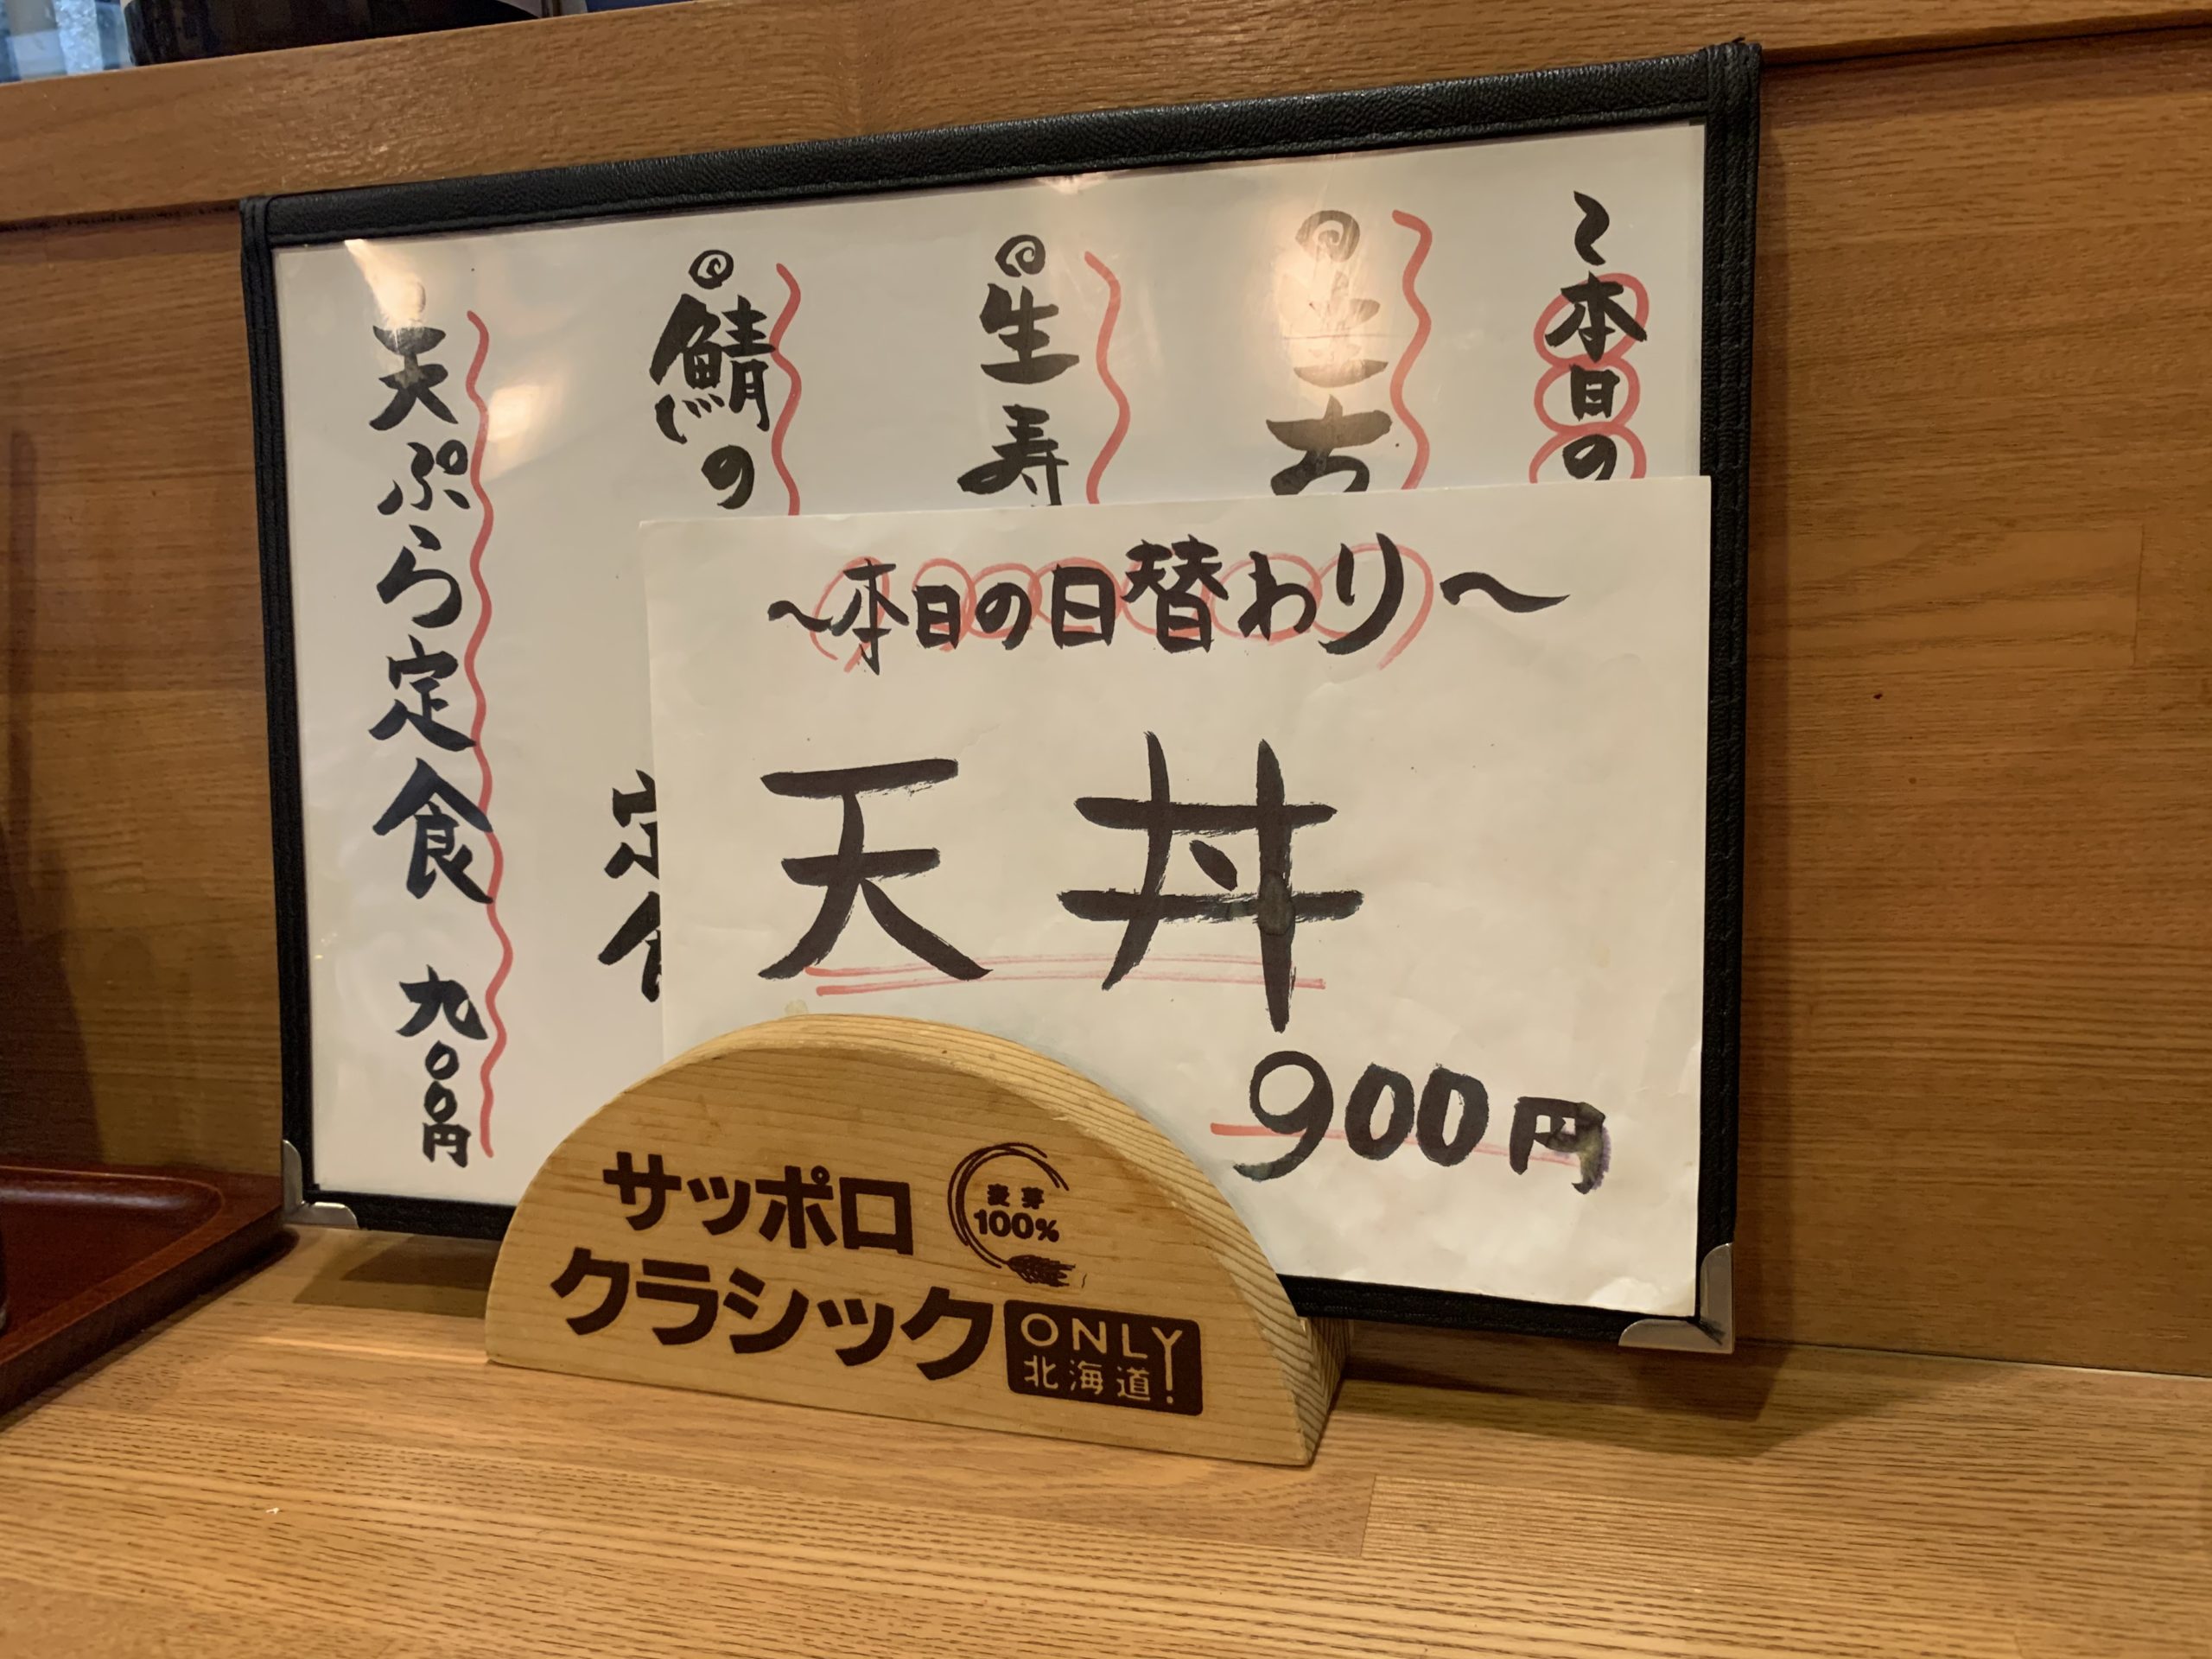 〜本日の
生ち
生寿
鯖の
定食
天ぷら定食 九〇〇円
〜本日の日替わり〜
天丼
900円
サッポロ
クラシック
麦芽
100%
ONLY!
北海道